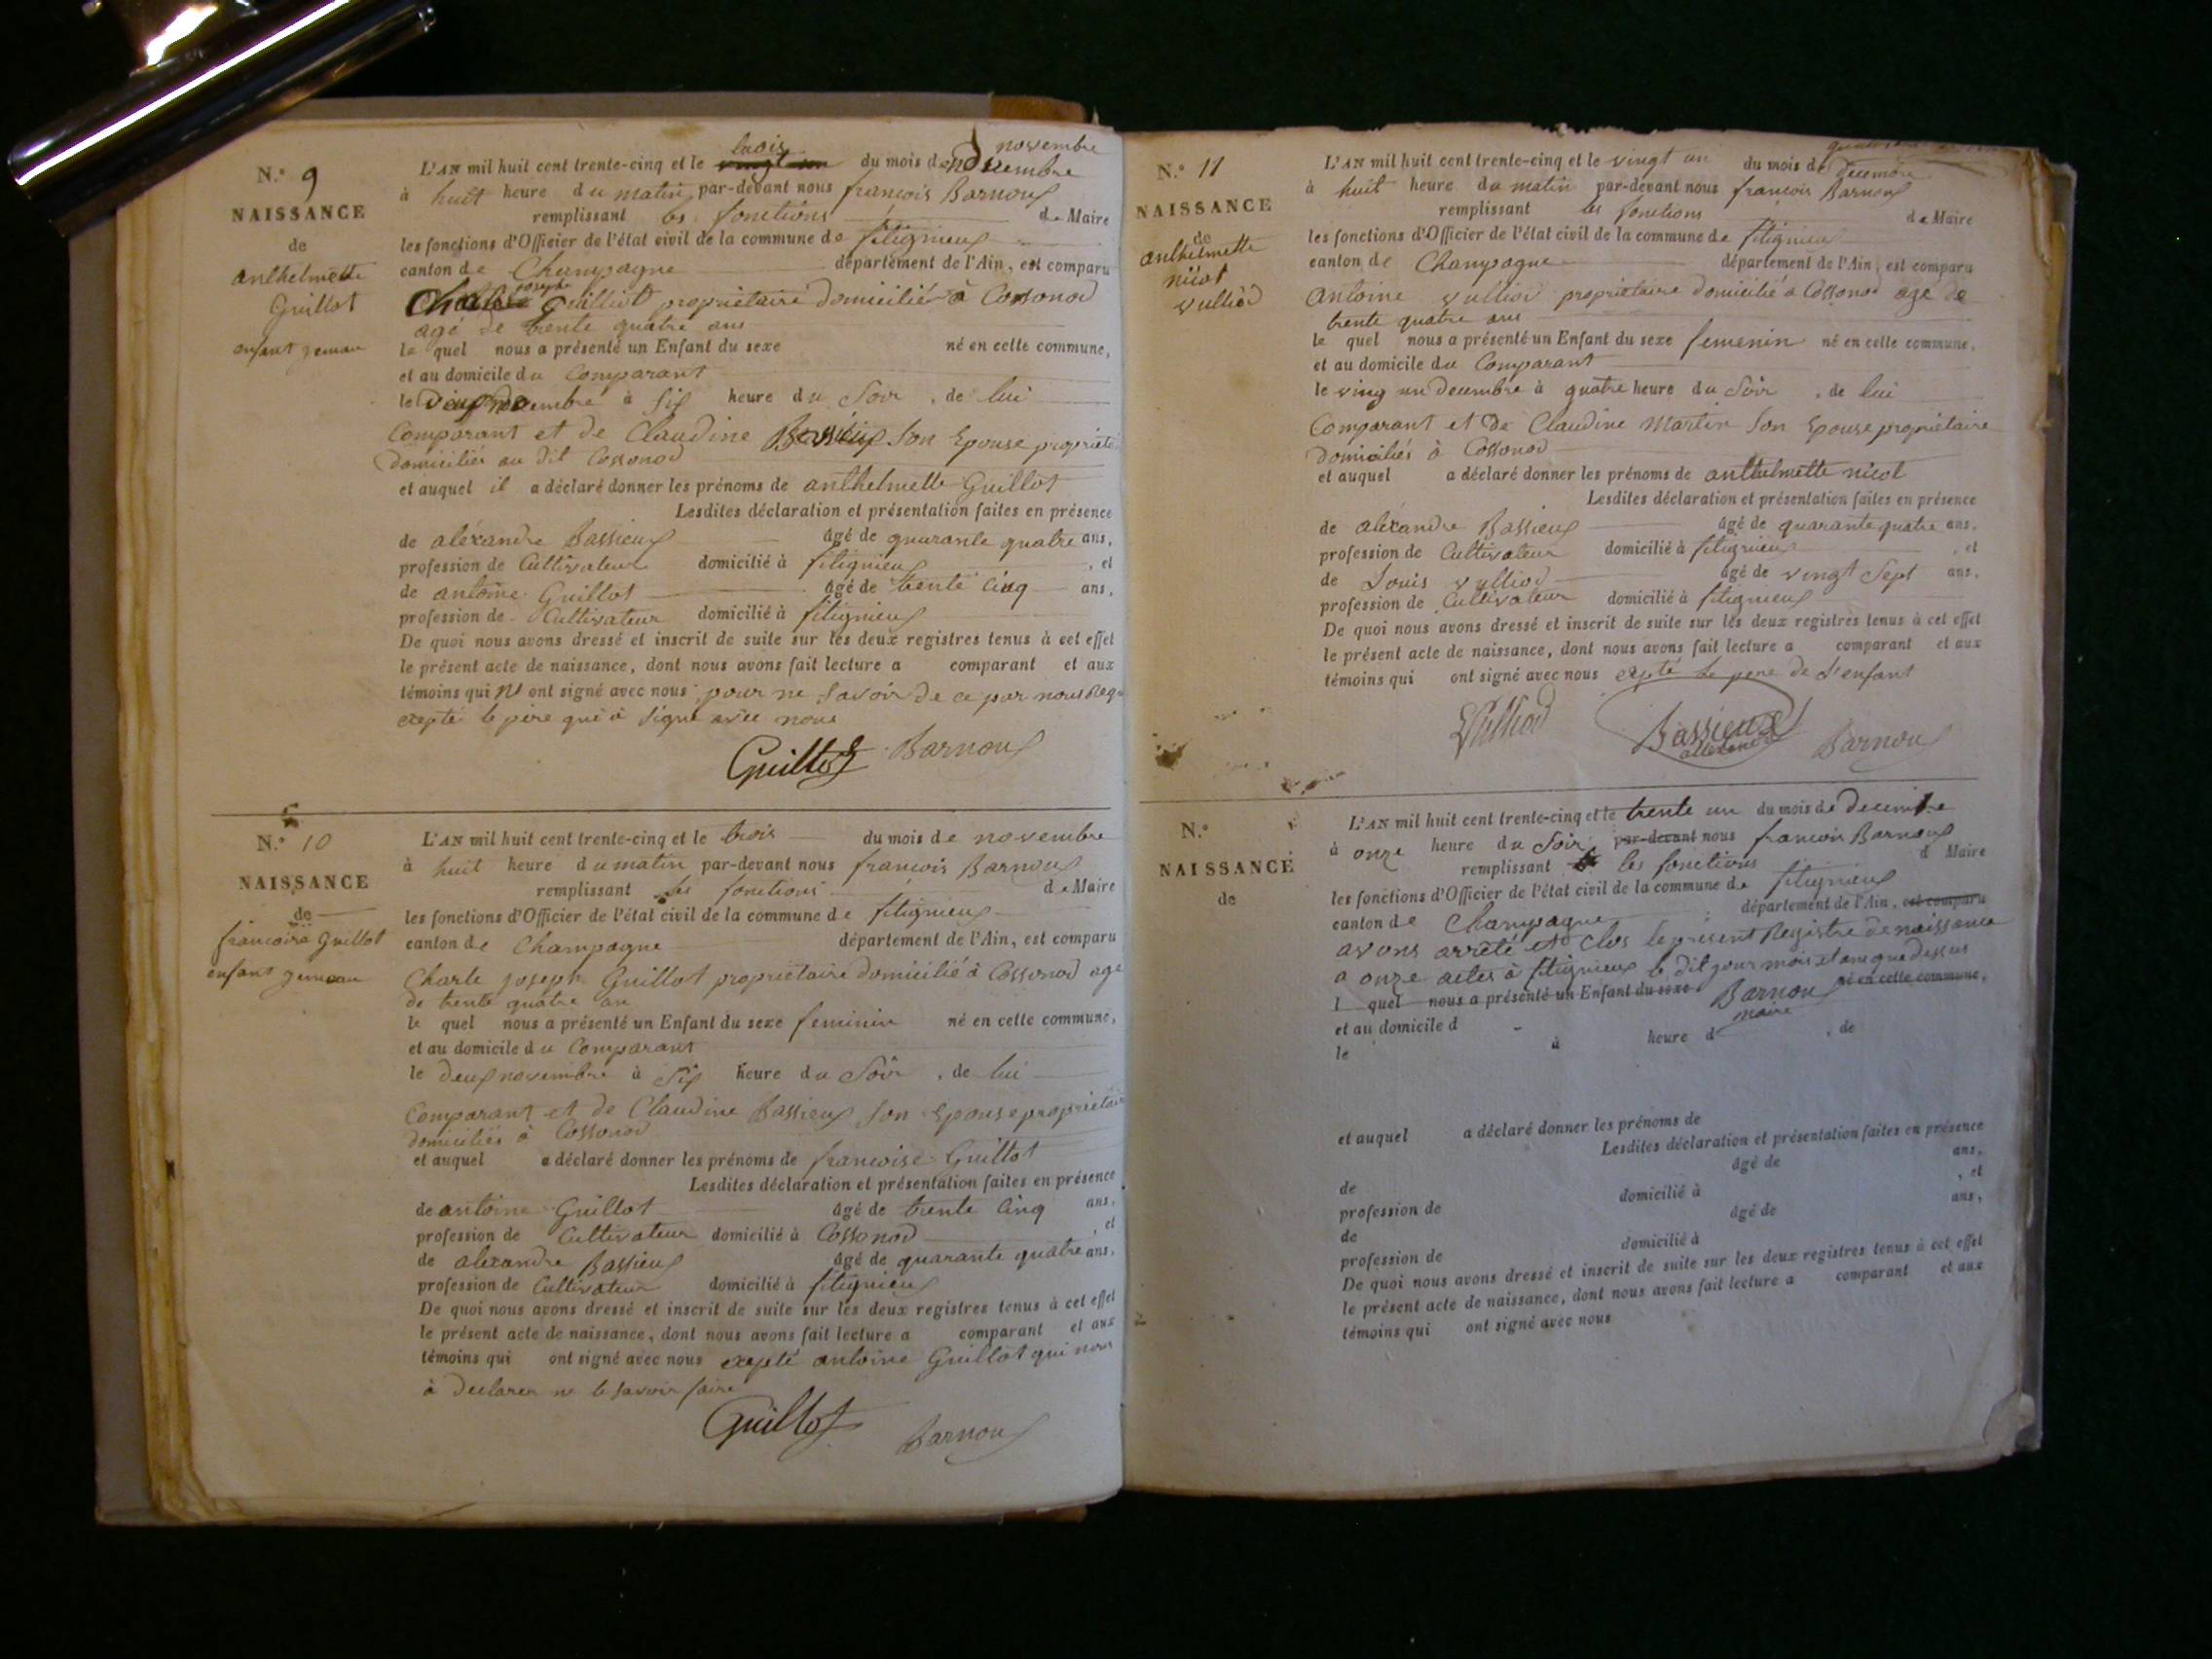 N.° 9
NAISSANCE
de
anthelmette
Guillot
enfant jumau
L'AN mil huit cent trente-cinq et le trois du mois de novembre
à huit heure du matin par-devant nous francois Barnoux
remplissant les fonctions de Maire
les fonctions d'Officier de l'état civil de la commune de fitignieux
canton de Champagne département de l'Ain, est comparu
Charle joseph Guilliot propriétaire domicilié à Cossonod
agé de trente quatre ans
le quel nous a présenté un Enfant du sexe né en cette commune,
et au domicile du Comparant
le deux novembre à six heure du Soir, de lui
Comparant et de Claudine Bassieux Son Epouse propriétai
domiciliés au dit Cossonod
et auquel il a déclaré donner les prénoms de anthelmette Guillot
Lesdites déclaration et présentation faites en présence
de aléxandre Bassieux âgé de quarante quatre ans,
profession de Cultivateur domicilié à fitignieux, et
de antoine Guillot âgé de trente cinq ans,
profession de Cultivateur domicilié à fitignieux
De quoi nous avons dressé et inscrit de suite sur les deux registres tenus à cet effet
le présent acte de naissance, dont nous avons fait lecture a comparant et aux
témoins qui n' ont signé avec nous pour ne Savoir de ce par nous Requ
exepté le père qui à Signé avec nous
Guillot Barnoux
N.° 10
NAISSANCE
de
francoise Guillot
enfant jumeau
L'AN mil huit cent trente-cinq et le trois du mois de novembre
à huit heure du matin par-devant nous francois Barnoux
remplissant les fonctions de Maire
les fonctions d'Officier de l'état civil de la commune de fitignieux
canton de Champagne département de l'Ain, est comparu
Charle joseph Guillot propriétaire domicilié à Cossonod agé
de trente quatre an
le quel nous a présenté un Enfant du sexe feminin né en cette commune,
et au domicile du Comparant
le deux novembre à Six heure du Soir, de lui
Comparant et de Claudine Bassieux Son Epouse propriétair
domiciliés à Cossonod
et auquel a déclaré donner les prénoms de francoise Guillot
Lesdites déclaration et présentation faites en présence
de antoine Guillot âgé de trente cinq ans,
profession de Cultivateur domicilié à Cossonod, et
de alexandre Bassieux âgé de quarante quatre ans,
profession de Cultivateur domicilié à fitignieux
De quoi nous avons dressé et inscrit de suite sur les deux registres tenus à cet effet
le présent acte de naissance, dont nous avons fait lecture a comparant et aux
témoins qui ont signé avec nous exepté antoine Guillot qui nous
à declarer ne le savoir faire
Guillot Barnoux
N.° 11
NAISSANCE
de
anthelmette
nicot
vulliod
L'AN mil huit cent trente-cinq et le vingt un du mois de decembre
à huit heure du matin par-devant nous francois Barnoux
remplissant les fonctions de Maire
les fonctions d'Officier de l'état civil de la commune de fitignieux
canton de Champagne département de l'Ain, est comparu
Antoine vulliod propriétaire domicilié à Cossonod agé de
trente quatre ans
le quel nous a présenté un Enfant du sexe femenin né en cette commune,
et au domicile du Comparant
le ving un decembre à quatre heure du Soir, de lui
Comparant et de Claudine Martin Son Epouse propriétaire
domiciliés à Cossonod
et auquel a déclaré donner les prénoms de anthelmette nicot
Lesdites déclaration et présentation faites en présence
de aléxandre Bassieux âgé de quarante quatre ans,
profession de Cultivateur domicilié à fitignieux, et
de Louis vulliod âgé de vingt Sept ans,
profession de Cultivateur domicilié à fitignieux
De quoi nous avons dressé et inscrit de suite sur les deux registres tenus à cet effet
le présent acte de naissance, dont nous avons fait lecture a comparant et aux
témoins qui ont signé avec nous expté le pere de l'enfant
Bassieux Barnoux
alexandre
N.°
NAISSANCE
de
L'AN mil huit cent trente-cinq et le trente un du mois de decembre
à onze heure du Soir par-devant nous francois Barnoux
remplissant les fonctions d Maire
les fonctions d'Officier de l'état civil de la commune de fitignieux
canton de Champagne département de l'Ain, est comparu
avons arrêté et Clos le présent Registre de naissance
a onze actes à fitignieux le dit jour mois et an que dessus
l quel nous a présenté un Enfant du sexe Barnoux né en cette commune,
maire
et au domicile d
le à heure d , de
et auquel a déclaré donner les prénoms de
Lesdites déclaration et présentation faites en présence
de âgé de ans,
profession de domicilié à , et
de âgé de ans,
profession de domicilié à
De quoi nous avons dressé et inscrit de suite sur les deux registres tenus à cet effet
le présent acte de naissance, dont nous avons fait lecture a comparant et aux
témoins qui ont signé avec nous